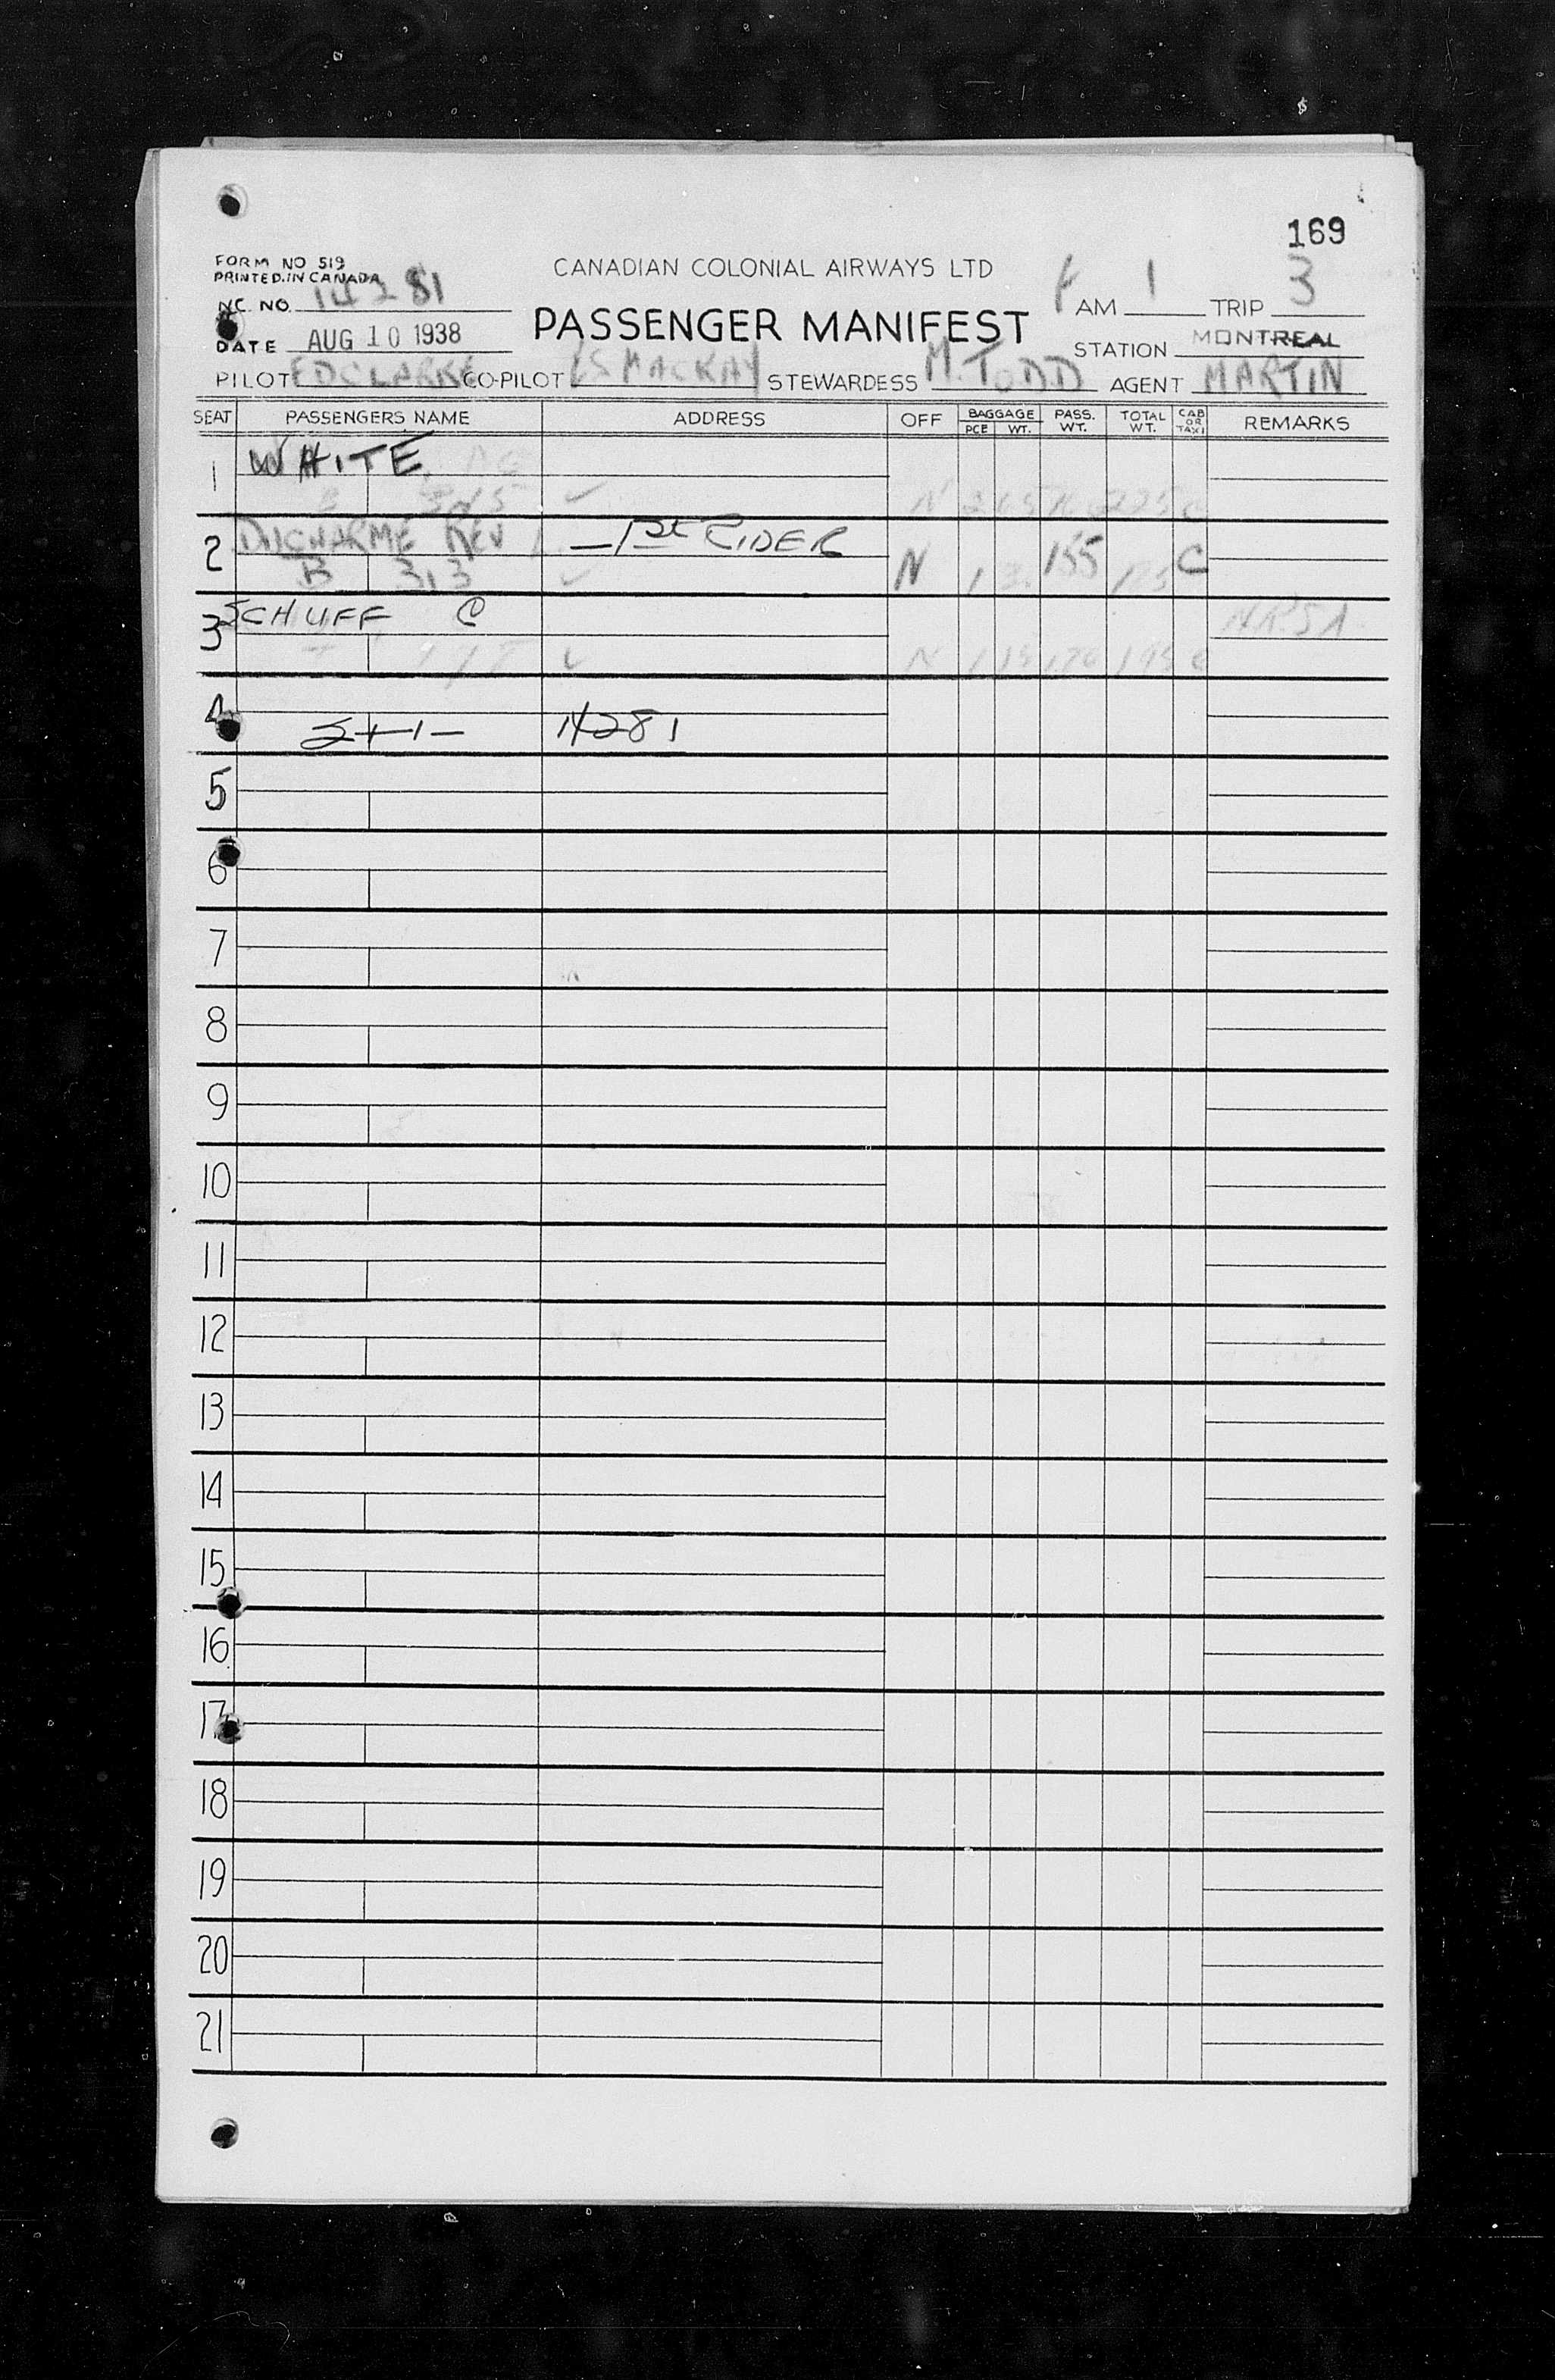 169
FORM NO 519
PRINTED IN CANADA
CANADIAN COLONIAL AIRWAYS LTD
NC. NO. 14281
PASSENGER MANIFEST
AM 1 TRIP 3
DATE AUG 10 1938
STATION MONTREAL
PILOT ED CLARKE CO-PILOT LS MACKAY STEWARDESS M. TODD AGENT MARTIN
SEAT PASSENGERS NAME ADDRESS OFF BAGGAGE PCE WT. PASS. WT. TOTAL WT. CAB OR TAXI REMARKS
1 WHITE
N 2 225 C
2 DUCHARME REV — 1st RIDER
B 313 N 1 155 C
3 SCHUFF C
N 1 170 C
4
2+1- 14281
5
6
7
8
9
10
11
12
13
14
15
16
17
18
19
20
21